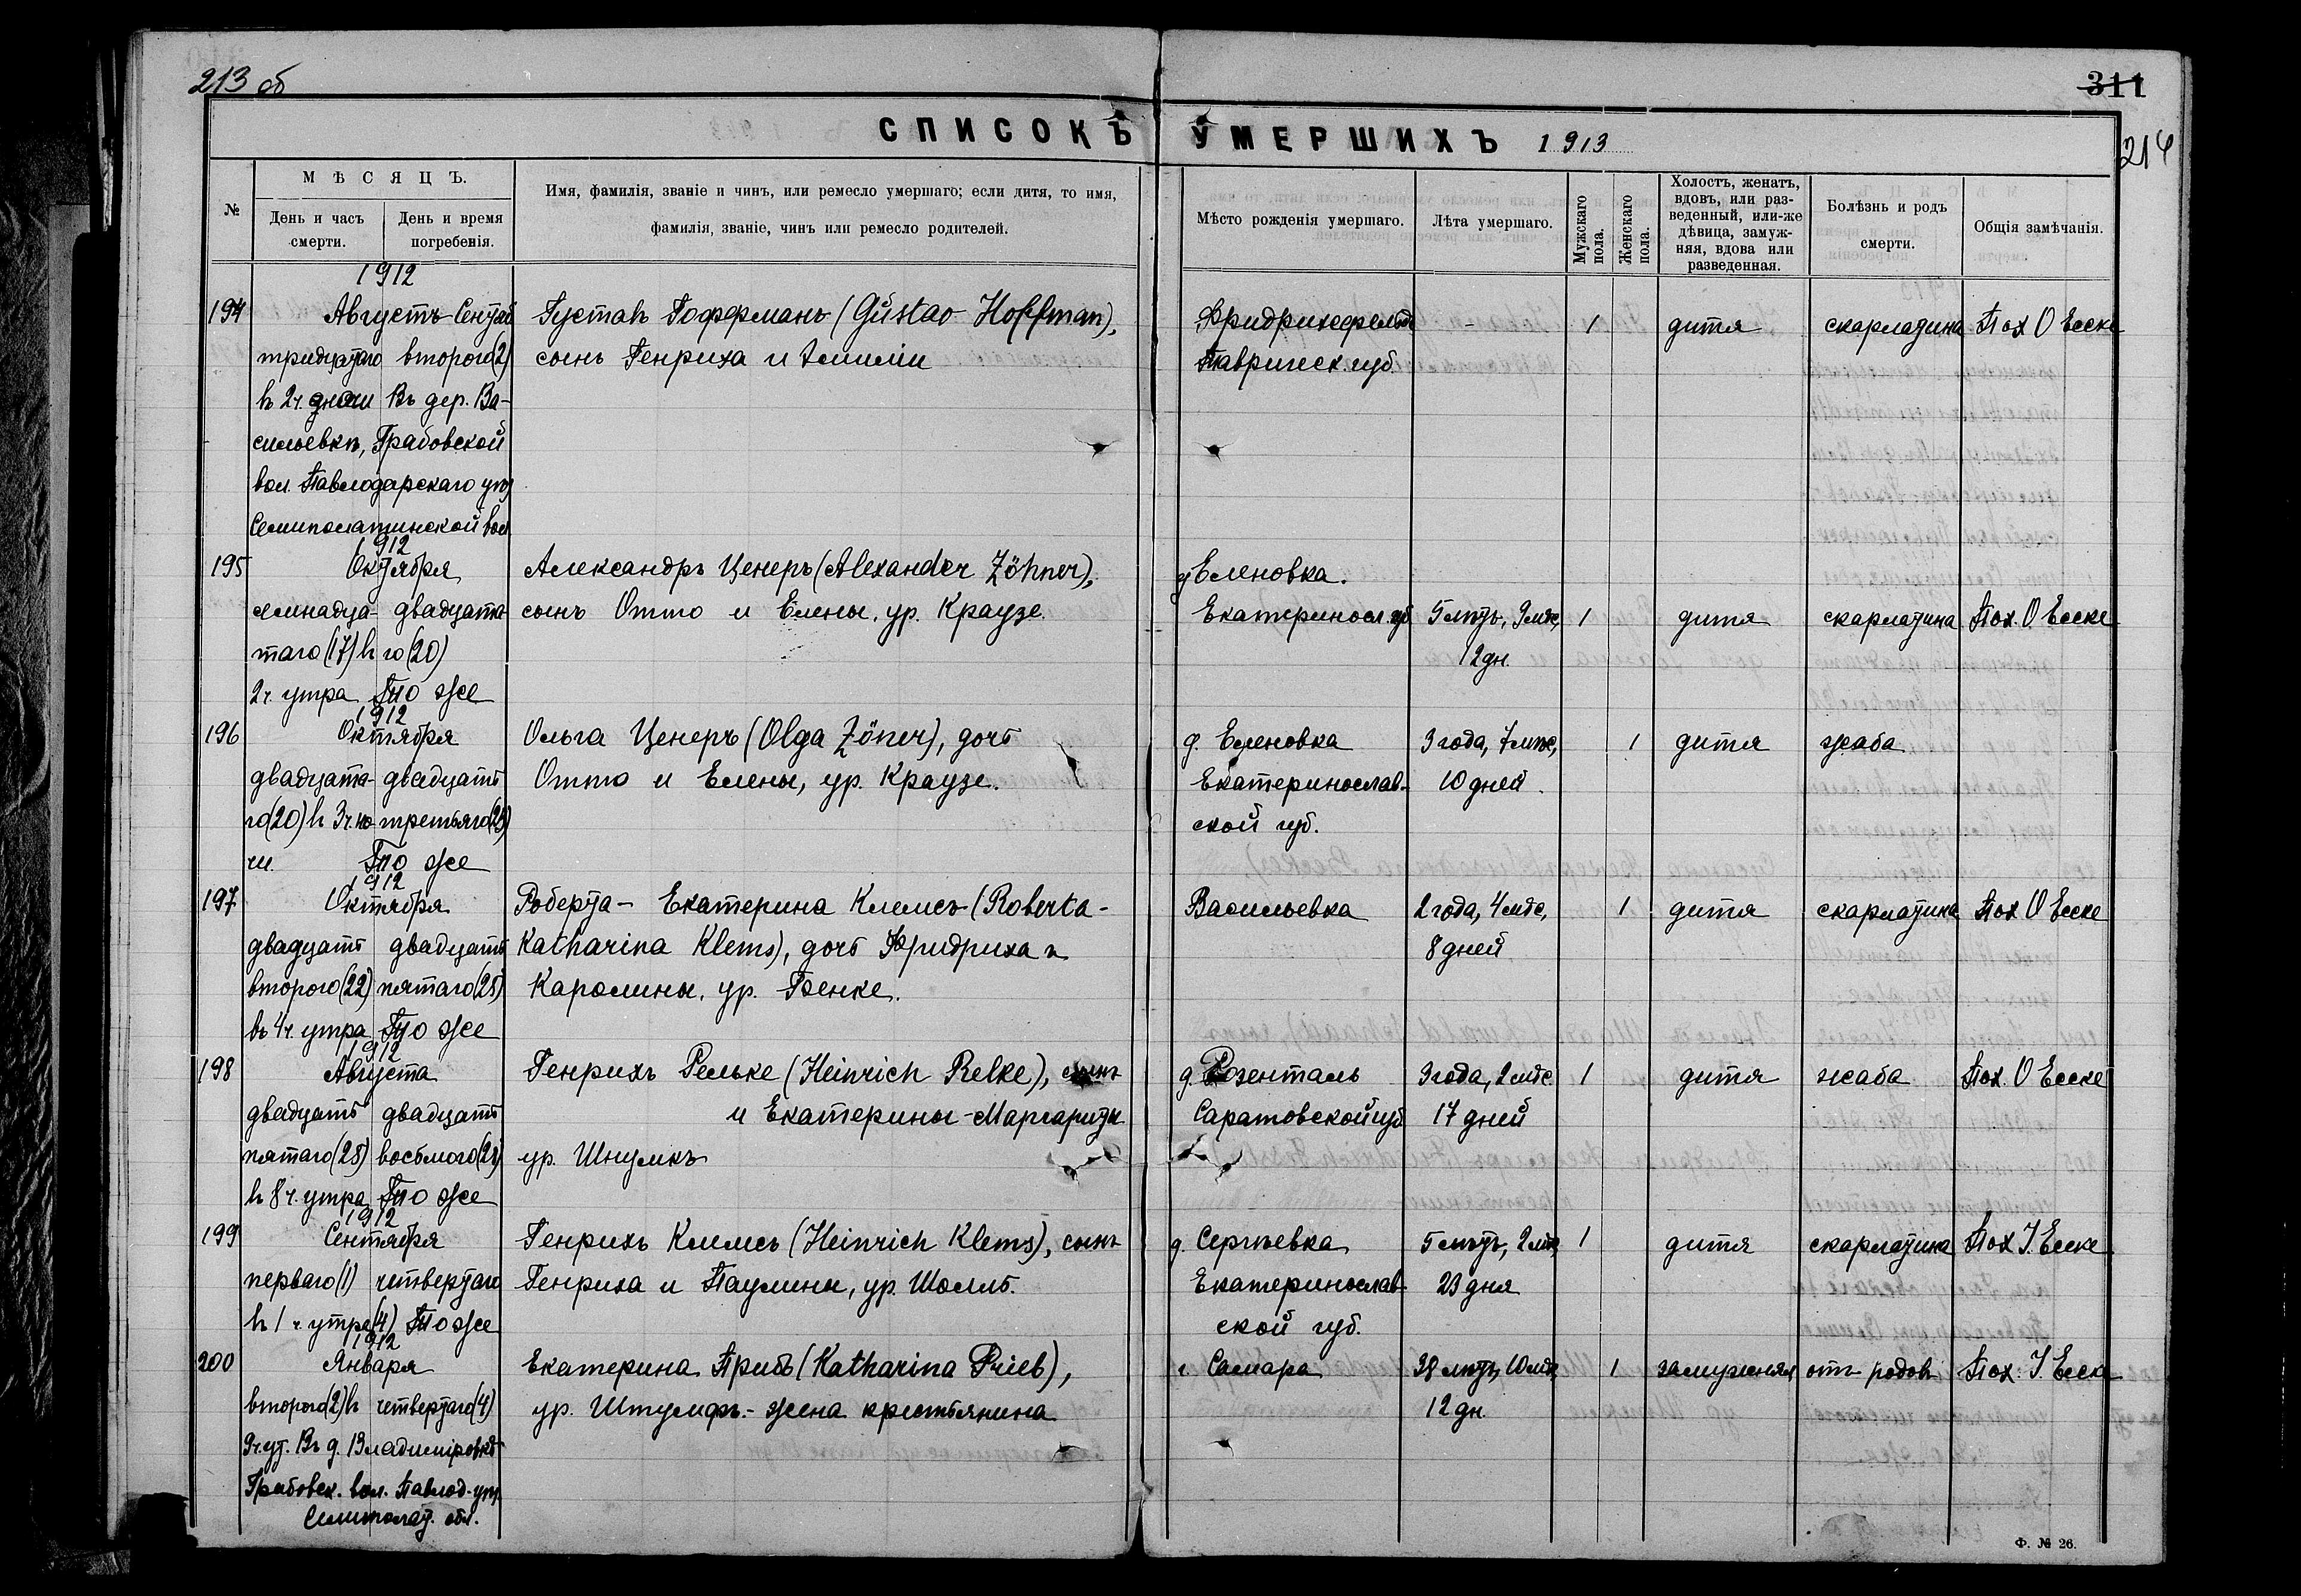 213 об
311
214
СПИСОКЪ УМЕРШИХЪ 1913
№
МѢСЯЦЪ.
День и часъ смерти.
День и время погребенія.
Имя, фамилія, званіе и чинъ, или ремесло умершаго; если дитя, то имя,
фамилія, званіе, чинъ или ремесло родителей.
Мѣсто рожденія умершаго.
Лѣта умершаго.
Мужскаго пола.
Женскаго пола.
Холостъ, женатъ,
вдовъ, или раз-
веденный, или-же
дѣвица, замуж-
няя, вдова или
разведенная.
Болѣзнь и родъ
смерти.
Общія замѣчанія.
1912
194 Августъ Сентяб Густавъ Гофманъ (Gŭstav Hoffman), Фридрихсфельдъ - 1 дитя скарлатина Пох О Еске
тридцатаго второго(2) сынъ Генриха и Эмиліи Таврическ. губ.
въ 2 ч. дня Въ дер. Ва-
сильевкѣ, Грабовской
вол. Павлодарскаго уѣз
Семипалатинской вол
1912
195 Октября Александръ Ценеръ (Alexander Zöhner), д Еленовка.
семнадца- двадцата- сынъ Отто и Елены, ур. Краузе. Екатериносл. губ 5 лѣтъ, 9 мѣс, 1 дитя скарлатина Пох. О. Еске
таго (17) въ го (20) 12 дн.
2 ч. утра Тло же
1912
196 Октября Ольга Ценеръ (Olga Zöner), дочь д. Еленовка 3 года, 7 мѣс, 1 дитя жаба
двадцата- двадцать Отто и Елены, ур. Краузе. Екатеринослав- 10 дней.
го (20) въ 3 ч. но- третьяго(23) ской губ.
чи. Тло же
1912
197 Октября Роберта- Екатерина Клемсъ (Roberta- Васильевка 2 года, 4 мѣс, 1 дитя скарлатина Пох О Еске
двадцать двадцать Katharina Klems), дочь Фридриха и 8 дней
второго (22) пятаго (25) Каролины, ур. Бенке.
въ 4 ч. утра Тло же
1912
198 Августа Генрихъ Рельке (Heinrich Relke), сынъ д. Розенталь 3 года, 2 мѣс. 1 дитя жаба Пох. О Еске
двадцать двадцать и Екатерины-Маргариты Саратовской губ 17 дней
пятаго (25) восьмого (28) ур.
въ 8 ч. утра Тло же
1912
199 Сентября Генрихъ Клемсъ (Heinrich Klems), сынъ д. Сергѣевка 5 лѣтъ, 2 мѣс 1 дитя скарлатина Пох I. Еске
перваго (1) четвертаго Генриха и Паулины, ур. Шоллъ. Екатеринослав- 23 дня
въ 1 ч. утра (4) Тло же ской губ.
1912
200 Января Екатерина Прибъ (Katharina Prieb), г. Самара 38 лѣтъ, 10 мѣс 1 замужняя отъ родовъ Пох. I. Еске
второго (2) въ четвертаго (4) ур. Штумфъ.- жена крестьянина 12 дн.
9 ч. ут. Въ д. Владиміровкѣ
Грабовск. вол. Павлод. уѣз.
Семипалат. обл.
Ф. № 26.